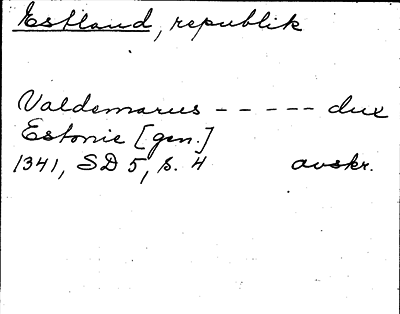 Estland, republik
Valdemarus - - - - - dux
Estonie [gen.]
1341, SD 5, s. 4 avskr.